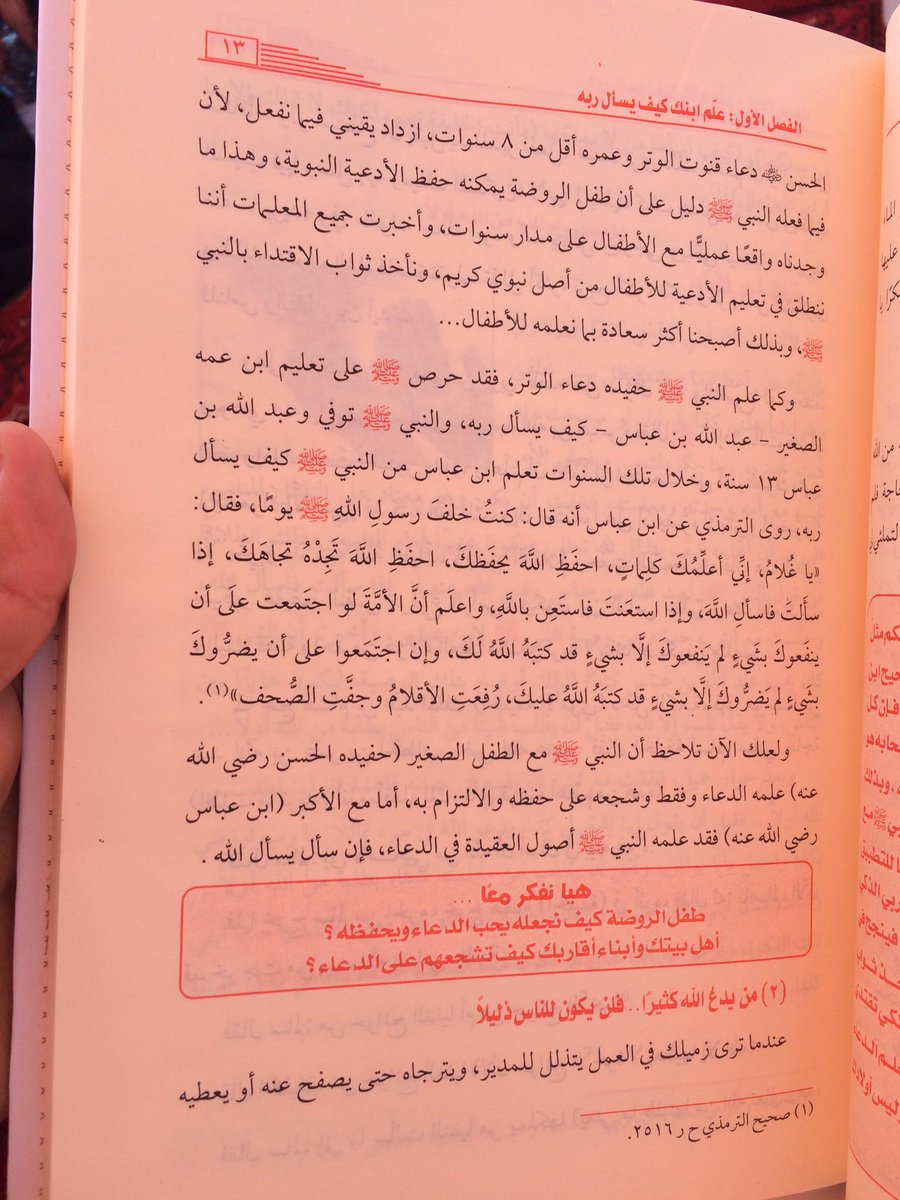 ١٣
الفصل الأول: علّم ابنك كيف يسأل ربه
الحسن ﵁ دعاء قنوت الوتر وعمره أقل من ٨ سنوات، ازداد يقيني فيما نفعل، لأن
فيما فعله النبي ﷺ دليل على أن طفل الروضة يمكنه حفظ الأدعية النبوية، وهذا ما
وجدناه واقعًا عمليًّا مع الأطفال على مدار سنوات، وأخبرت جميع المعلمات أننا
ننطلق في تعليم الأدعية للأطفال من أصل نبوي كريم، ونأخذ ثواب الاقتداء بالنبي
ﷺ، وبذلك أصبحنا أكثر سعادة بما نعلمه للأطفال...
وكما علم النبي ﷺ حفيده دعاء الوتر، فقد حرص ﷺ على تعليم ابن عمه
الصغير - عبد الله بن عباس - كيف يسأل ربه، والنبي ﷺ توفي وعبد الله بن
عباس ١٣ سنة، وخلال تلك السنوات تعلم ابن عباس من النبي ﷺ كيف يسأل
ربه، روى الترمذي عن ابن عباس أنه قال: كنتُ خلفَ رسولِ اللهِ ﷺ يومًا، فقال:
«يا غُلامُ، إنِّي أعلِّمُكَ كلِماتٍ، احفَظِ اللَّهَ يحفَظكَ، احفَظِ اللَّهَ تَجِدْهُ تجاهَكَ، إذا
سألتَ فاسألِ اللَّهَ، وإذا استعَنتَ فاستَعِن باللَّهِ، واعلَم أنَّ الأمَّةَ لو اجتَمعت علَى أن
ينفَعوكَ بشَيءٍ لم يَنفعوكَ إلَّا بشيءٍ قد كتبَهُ اللَّهُ لَكَ، وإن اجتَمَعوا على أن يضرُّوكَ
بشَيءٍ لم يَضرُّوكَ إلَّا بشيءٍ قد كتبَهُ اللَّهُ عليكَ، رُفِعَتِ الأقلامُ وجفَّتِ الصُّحف»(١).
ولعلك الآن تلاحظ أن النبي ﷺ مع الطفل الصغير (حفيده الحسن رضي الله
عنه) علمه الدعاء وفقط وشجعه على حفظه والالتزام به، أما مع الأكبر (ابن عباس
رضي الله عنه) فقد علمه النبي ﷺ أصول العقيدة في الدعاء، فإن سأل يسأل الله .
هيا نفكر معًا ...
طفل الروضة كيف نجعله يحب الدعاء ويحفظه؟
أهل بيتك وأبناء أقاربك كيف تشجعهم على الدعاء؟
(٢) من يدعُ الله كثيرًا.. فلن يكون للناس ذليلاً
عندما ترى زميلك في العمل يتذلل للمدير، ويترجاه حتى يصفح عنه أو يعطيه
(١) صحيح الترمذي ح ر ٢٥١٦.